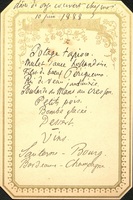 Dîner de dix couverts chez moi
10 juin 1888
Potage tapioca
Mulet sauce hollandaise
Filet de boeuf Périgueux
Ris de veau
Poulardes du Mans au cresson
Petits pois
Bombe glacée
Dessert
Vins
Sauternes - Bourg
Bordeaux - Champagne